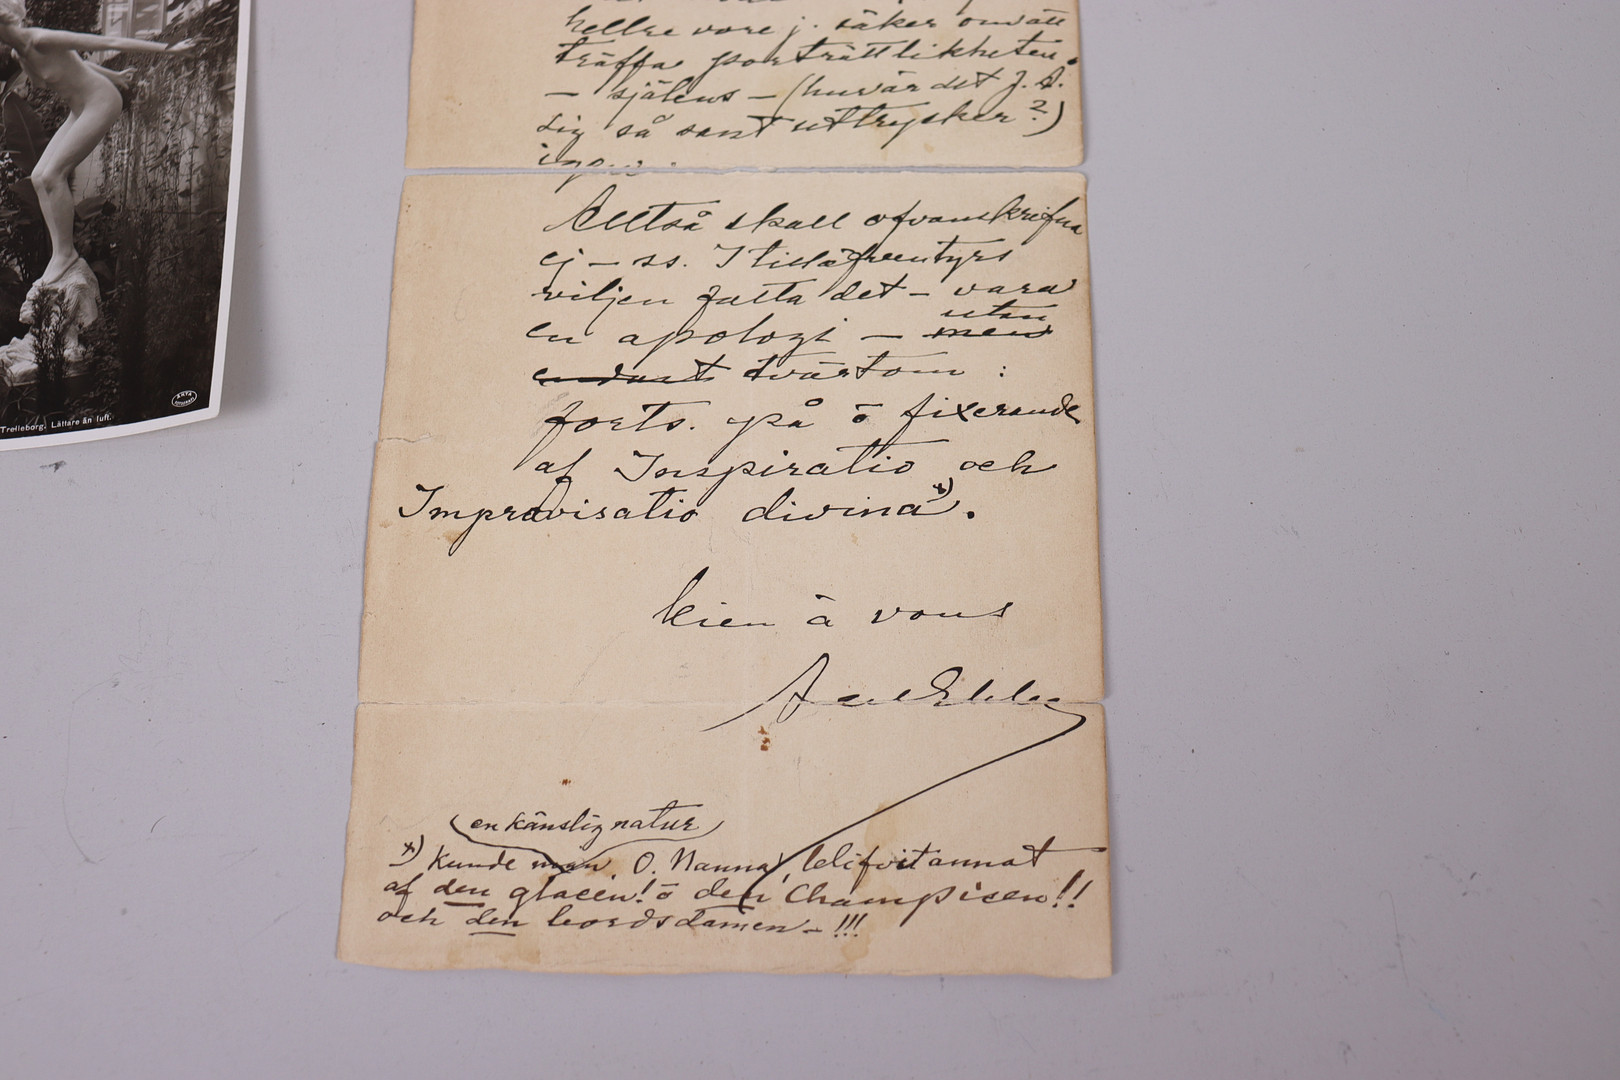 hellre vore j. säker om att
träffa porträttlikheten
– själens – (huvar det J. A.
sig så sant uttrycker?)
igen.
Alltså skall ofvanskrifna
ej – ss. I
viljen fatta det – vara
en apologi – men utan
endast tvärtom :
forts. på o fixerande
af Inspiratio och
Improvisatio divina x).
bien à vous
Axel Ebbe
(en känslig natur)
x) kunde man, O. Nanna, blifvit annat
af den glacen! o den Champisen!!
och den bordsdamen – !!!
Trelleborg. Lättare än luft.